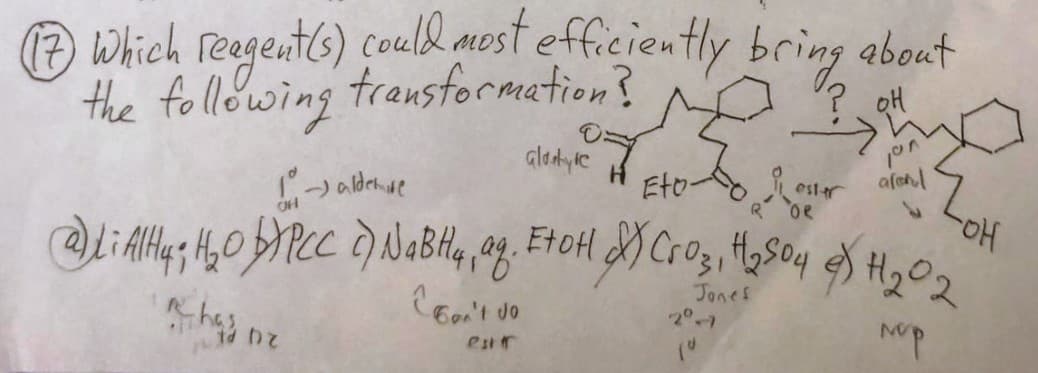 (17) Which reagent(s) could most efficiently bring about
the following transformation?
?
OH
O
H
EtO
O
R
O
OR
ester
OH
1° → aldehyde
OH
a) LiAlH4; H2O b) PCC c) NaBH4, aq. EtOH d) CrO3, H2SO4 e) H2O2
has
Jones
2° →
Nop